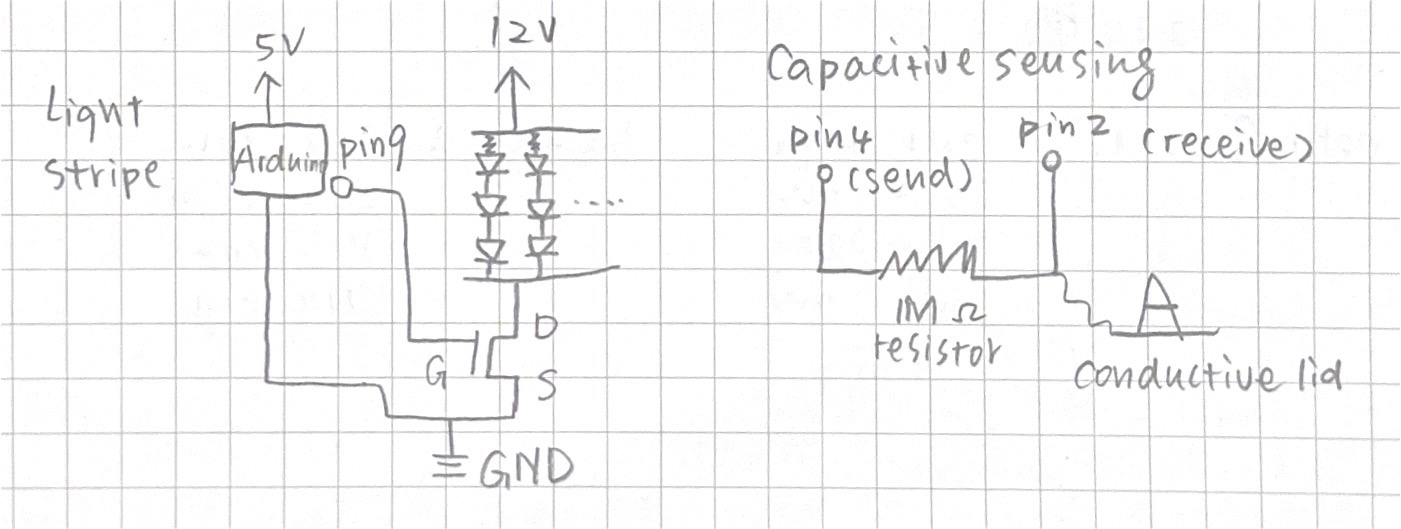 Light
stripe
5V
12V
Arduino
pin9
G
D
S
GND
Capacitive sensing
pin4
(send)
pin2 (receive)
1MΩ
resistor
conductive lid